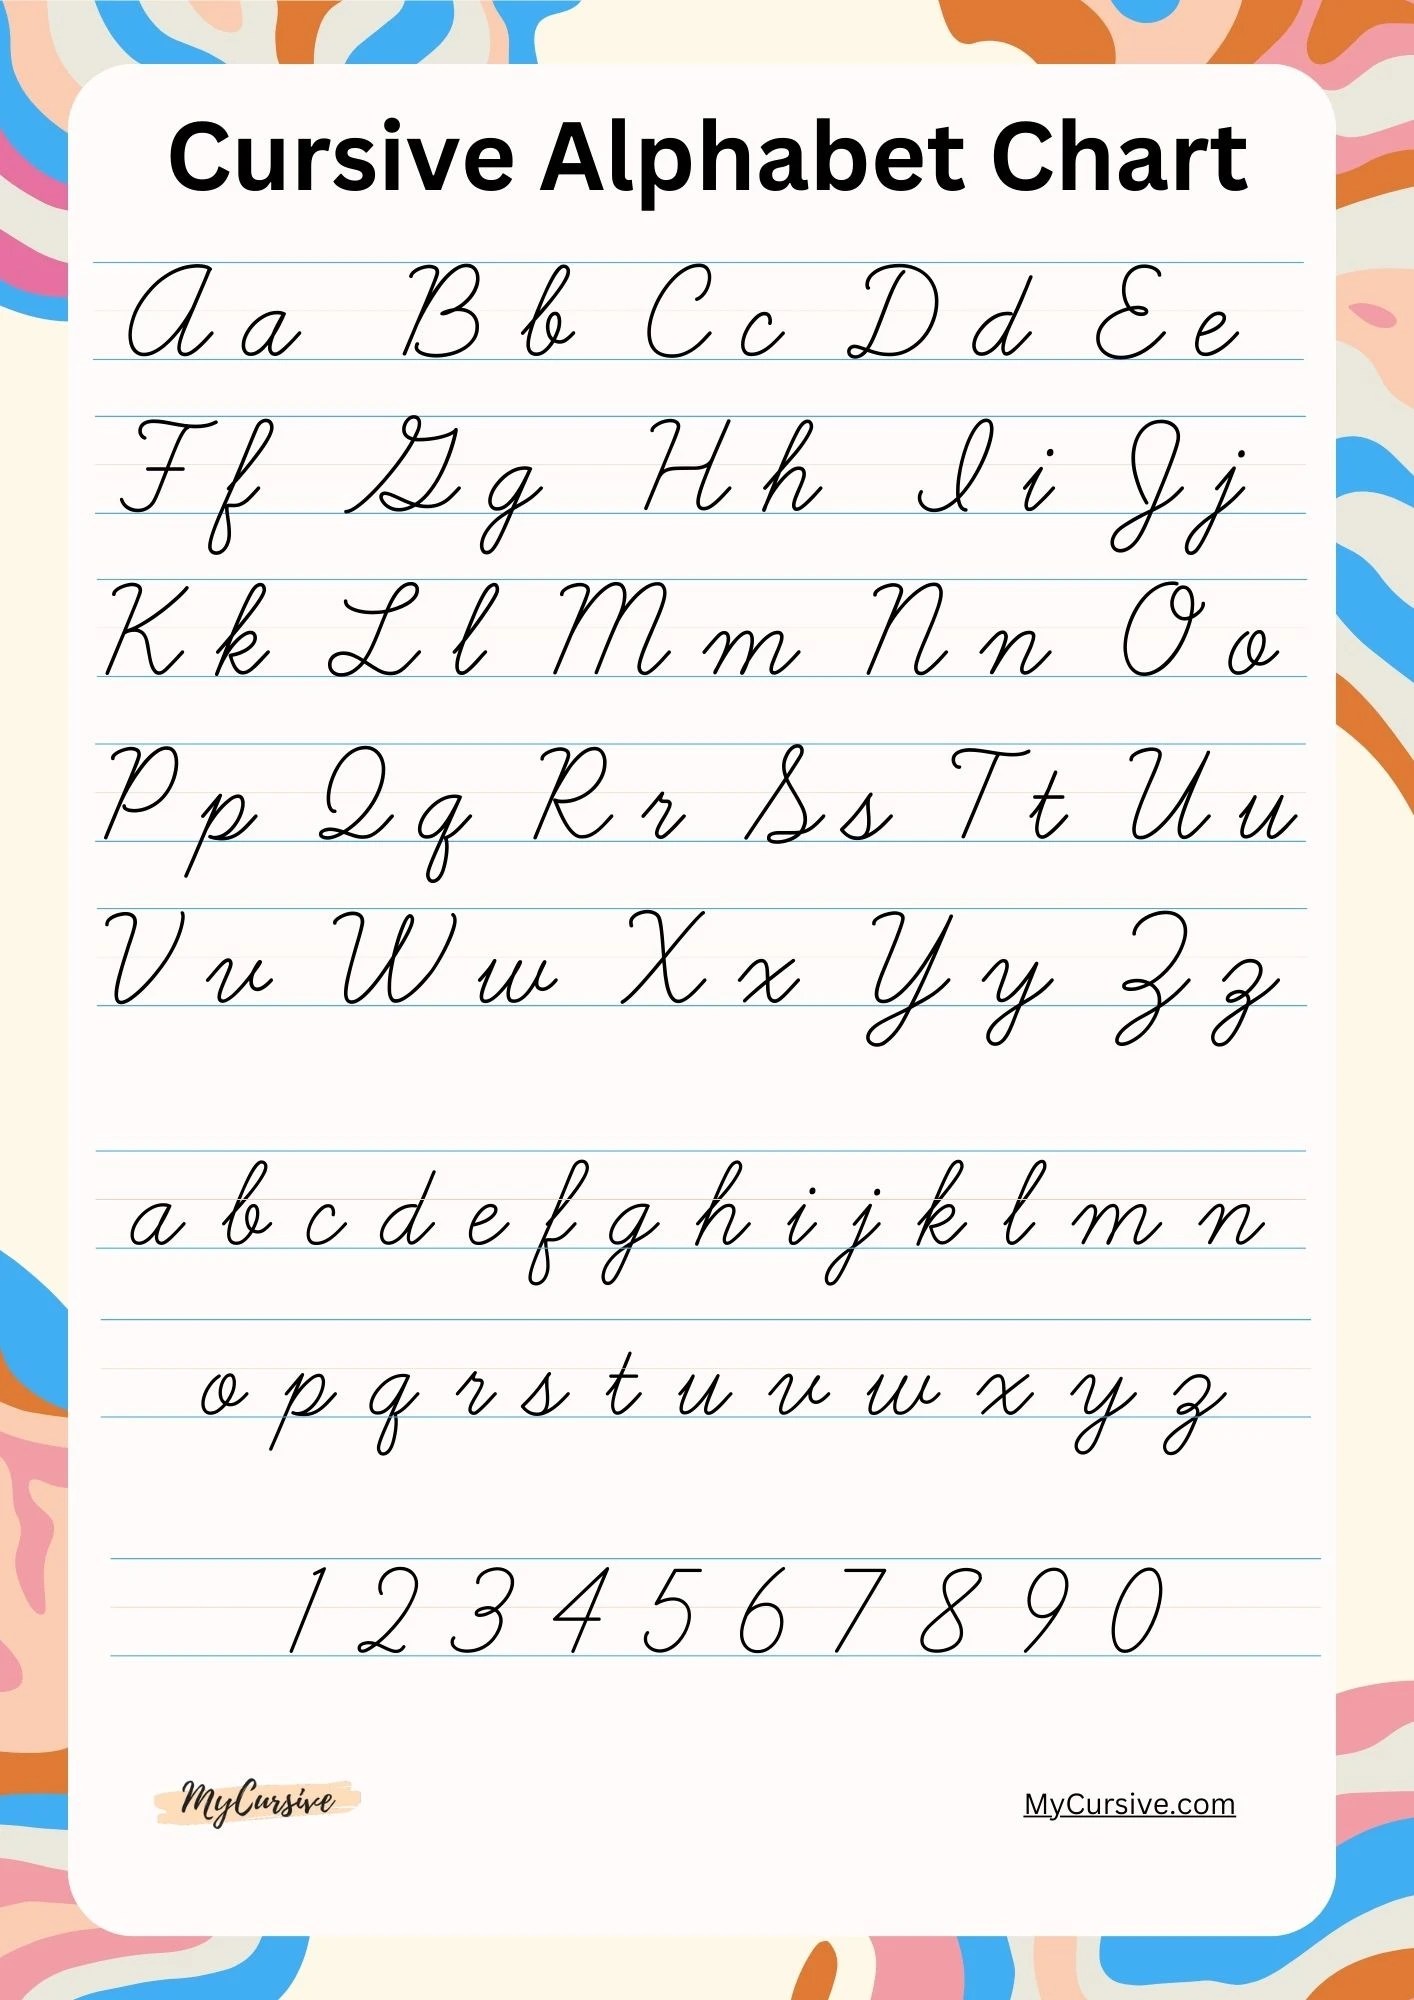 Cursive Alphabet Chart
Aa Bb Cc Dd Ee
Ff Gg Hh Ii Jj
Kk Ll Mm Nn Oo
Pp Qq Rr Ss Tt Uu
Vv Ww Xx Yy Zz
a b c d e f g h i j k l m n
o p q r s t u v w x y z
1 2 3 4 5 6 7 8 9 0
MyCursive
MyCursive.com